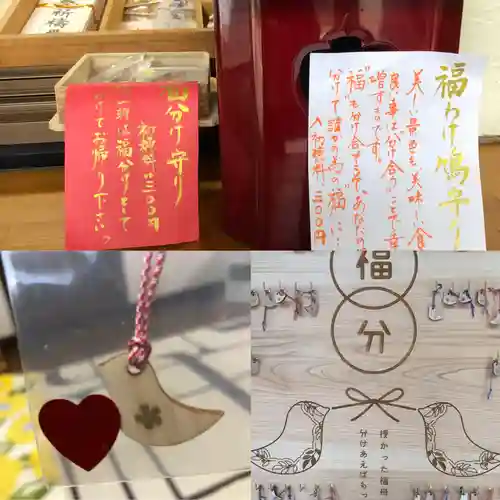 福分け守り
初穂料 三〇〇円
一羽は福分けとして
かけてお帰り下さい。
福わけ鳩守り
美しい景色も美味しい食
良い事は、分け合うことで幸
増すものです。
福も分け合すことで、あなたの
分けて誰かの為の福に…
初穂料 三〇〇円
福
分
授かった福母
分けあえばもっ